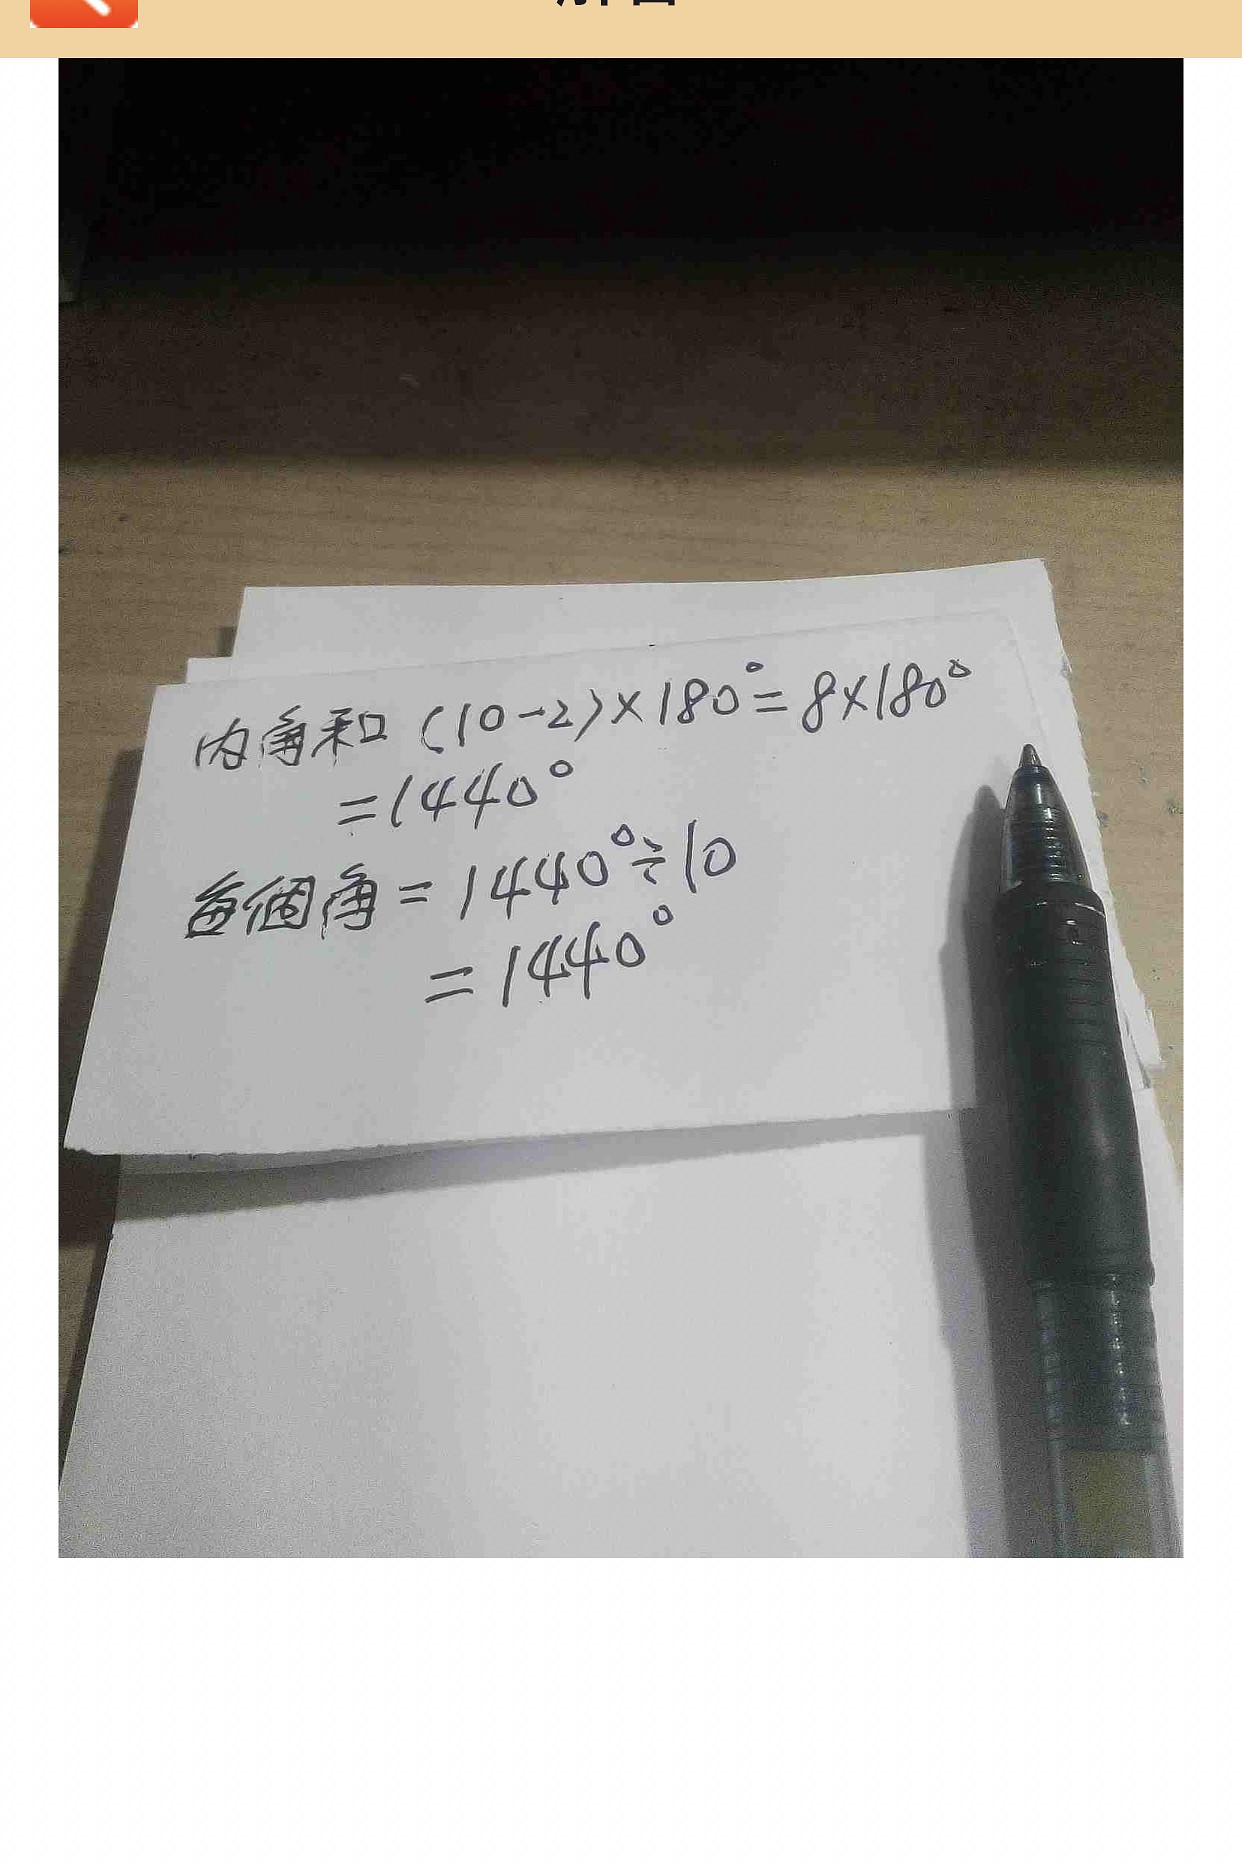 內角和 (10-2)×180°=8×180°
=1440°
每個角=1440°÷10
=1440°